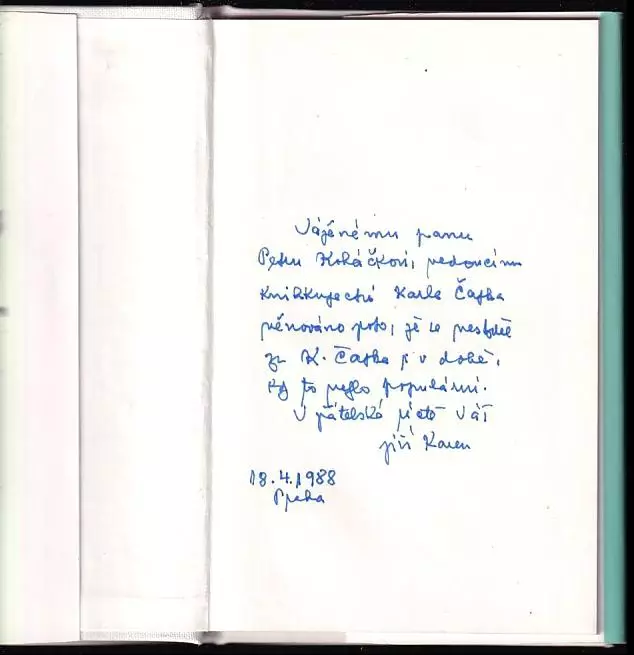 Váženému panu
Petru Kováčkovi, vedoucímu
knihkupectví Karla Čapka
věnováno proto, že se
za K. Čapka i v době,
kdy to nebylo populární.
V přátelské úctě Váš
Jiří Karen
18.4.1988
Praha